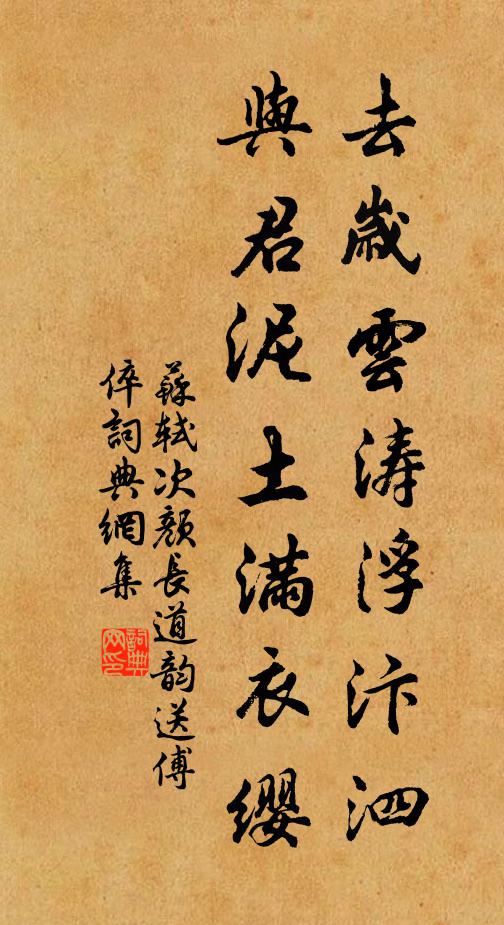 去歲雲濤浮汴泗
與君泥土滿衣纓
蘇軾次顏長道韵送傅
倅詞典網集
詞典网印